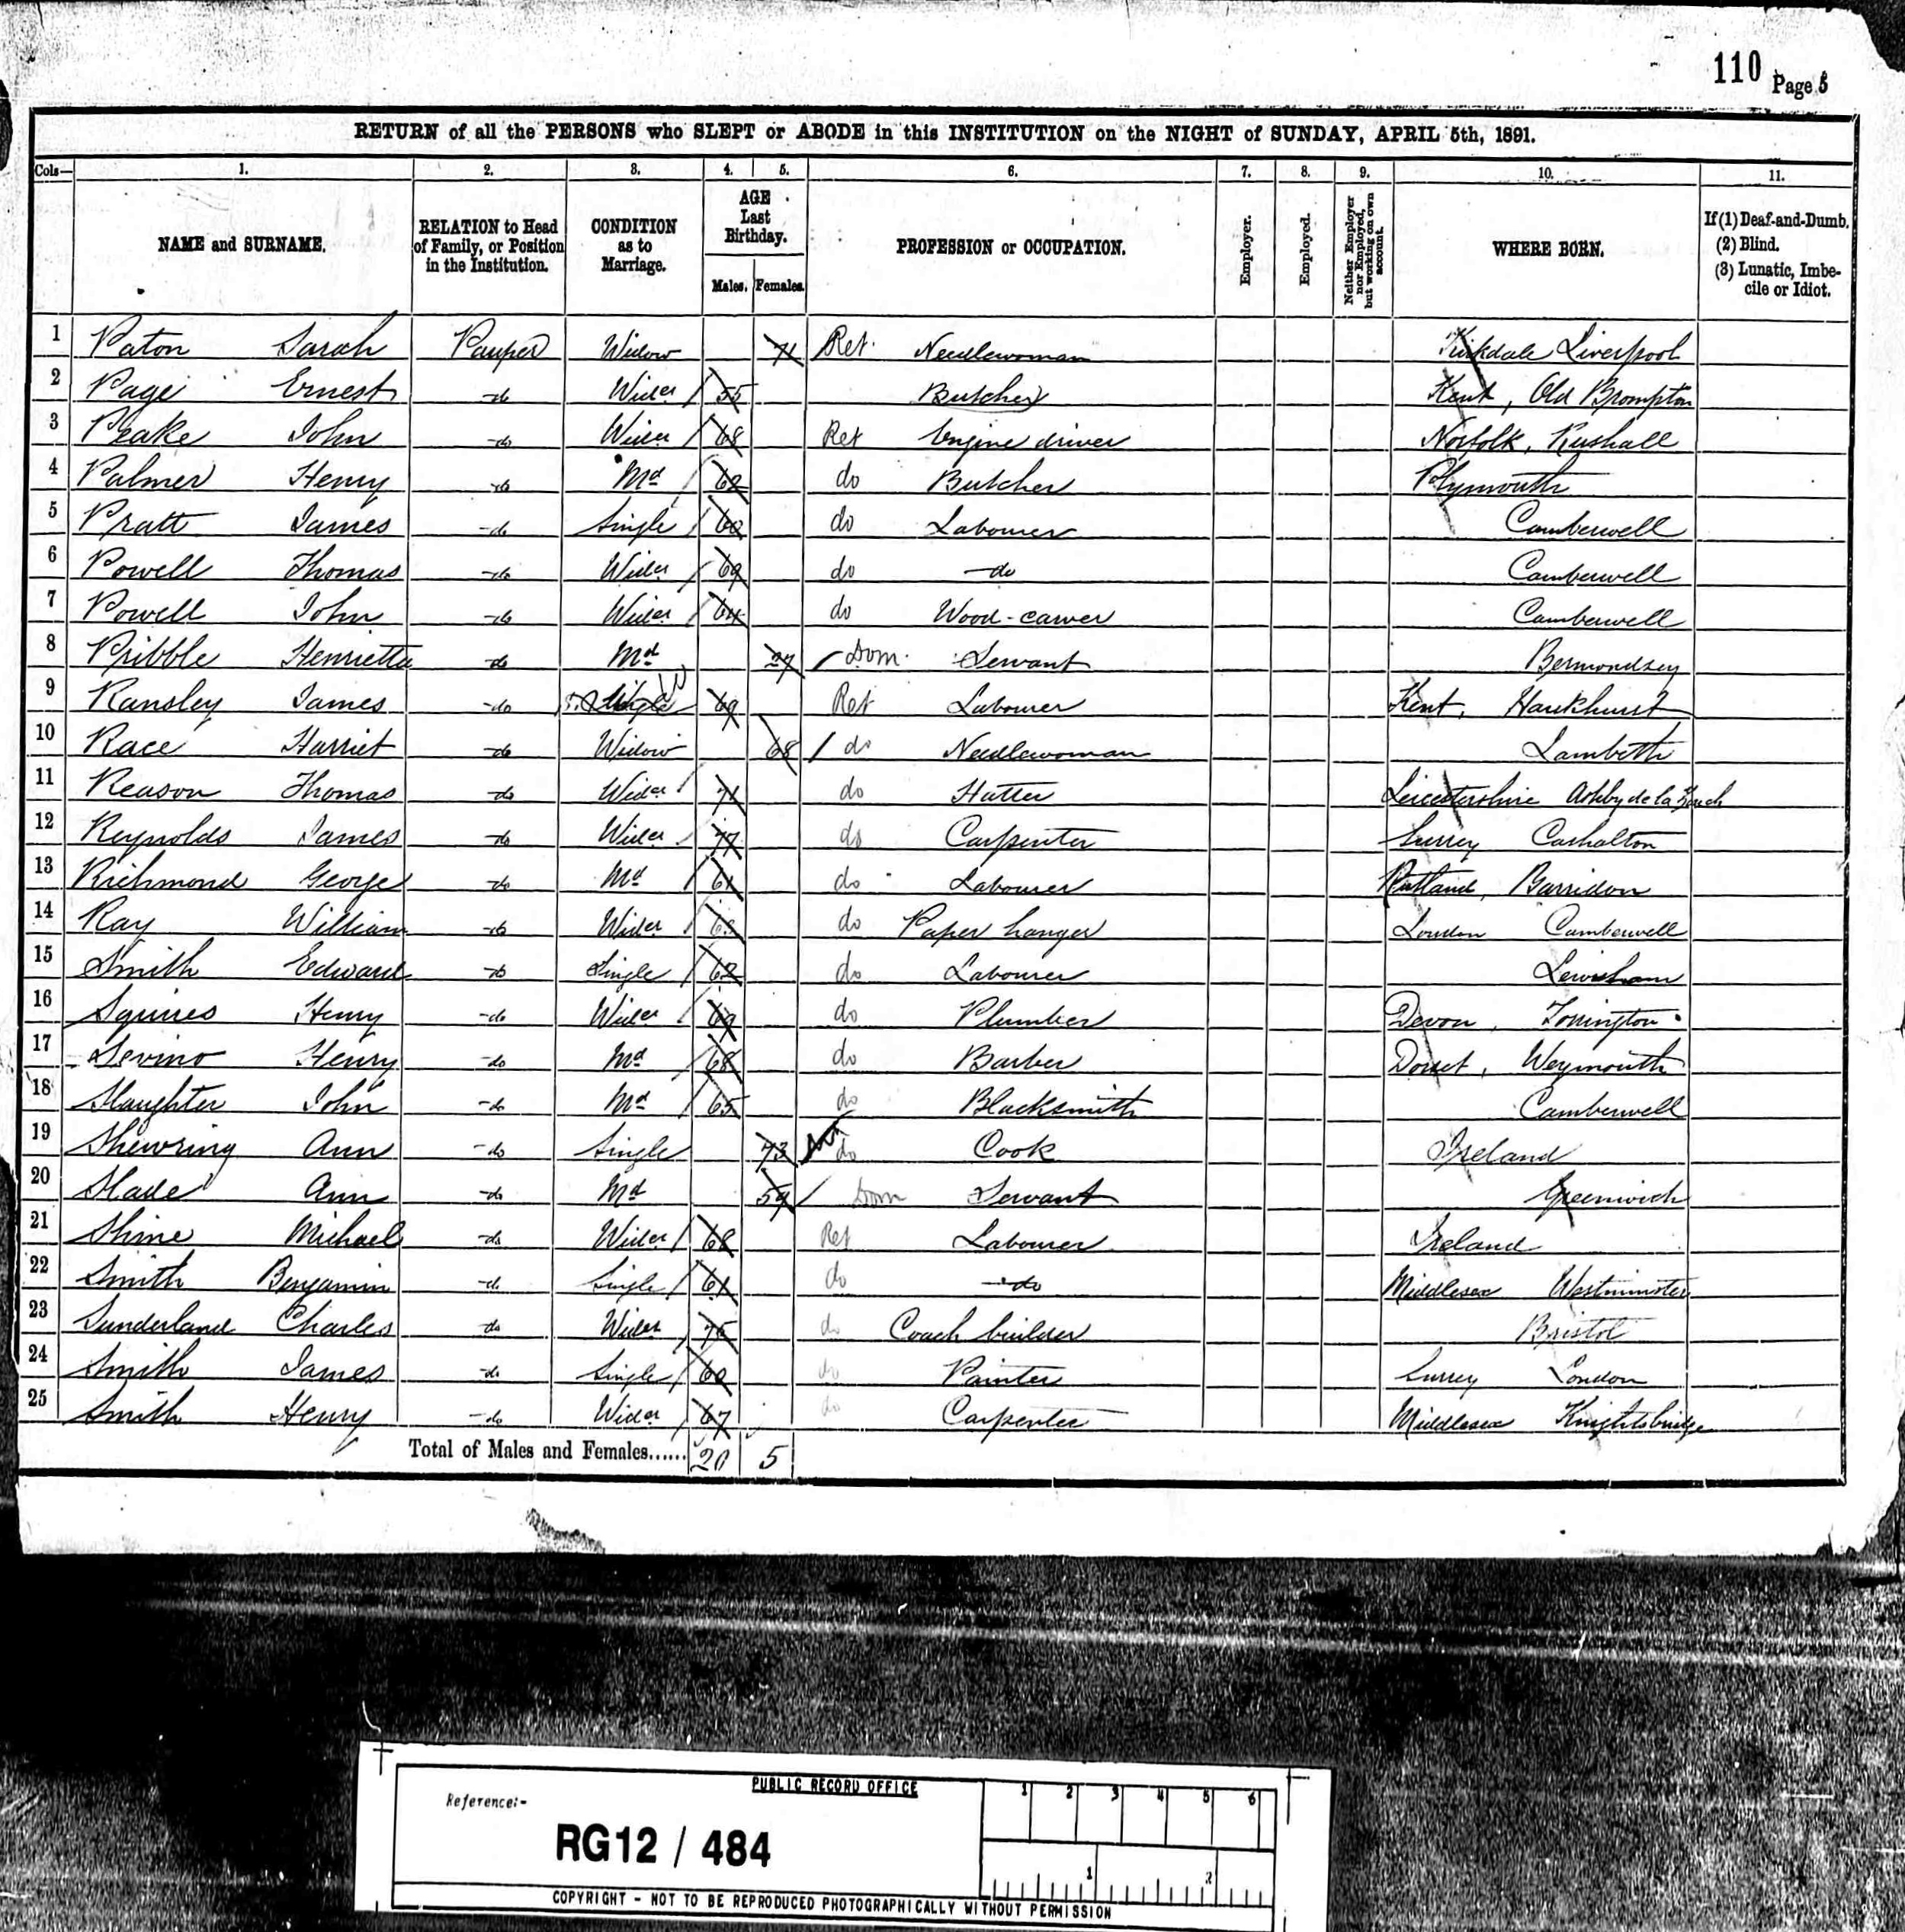 110 Page 5
RETURN of all the PERSONS who SLEPT or ABODE in this INSTITUTION on the NIGHT of SUNDAY, APRIL 5th, 1891.
Cols— 1. 2. 3. 4. 5. 6. 7. 8. 9. 10. 11.
NAME and SURNAME. RELATION to Head of Family, or Position in the Institution. CONDITION as to Marriage. AGE Last Birthday. Males. Females. PROFESSION or OCCUPATION. Employer. Employed. Neither Employer nor Employed, but working on own account. WHERE BORN. If (1) Deaf-and-Dumb. (2) Blind. (3) Lunatic, Imbecile or Idiot.
1 Paton Sarah Pauper Widow 71 Ret. Needlewoman Kirkdale Liverpool
2 Page Ernest do Wider 55 Butcher Kent, Old Brompton
3 Peake John do Wider 68 Ret Engine driver Norfolk, Rushall
4 Palmer Henry do Md 62 do Butcher Plymouth
5 Pratt James do Single 60 do Labourer Camberwell
6 Powell Thomas do Wider 69 do do Camberwell
7 Powell John do Wider 64 do Wood-carver Camberwell
8 Pribble Henrietta do Md 27 Dom. Servant Bermondsey
9 Ransley James do Single 69 Ret Labourer Kent, Hawkhurst
10 Race Harriet do Widow 68 do Needlewoman Lambeth
11 Reason Thomas do Wider 71 do Hatter Leicestershire Ashby de la Zouch
12 Reynolds James do Wider 77 do Carpenter Surrey Cashalton
13 Richmond George do Md 61 do Labourer Rutland, Barridon
14 Ray William do Wider do Paper hanger London Camberwell
15 Smith Edward do Single 62 do Labourer Lewisham
16 Squires Henry do Wider 69 do Plumber Devon, Torrington
17 Sevino Henry do Md 68 do Barber Dorset, Weymouth
18 Slaughter John do Md 65 do Blacksmith Camberwell
19 Shewring Ann do Single 73 do Cook Ireland
20 Slade Ann do Md 59 Dom Servant Greenwich
21 Shine Michael do Wider 68 Ret Labourer Ireland
22 Smith Benjamin do Single 61 do do Middlesex Westminster
23 Sunderland Charles do Wider 75 do Coach builder Bristol
24 Smith James do Single 60 do Painter Surrey London
25 Smith Henry do Wider 67 do Carpenter Middlesex Knightsbridge
Total of Males and Females...... 20 5
PUBLIC RECORD OFFICE
1 2 3 4 5 6
Reference:-
RG12 / 484
1 2
COPYRIGHT - NOT TO BE REPRODUCED PHOTOGRAPHICALLY WITHOUT PERMISSION